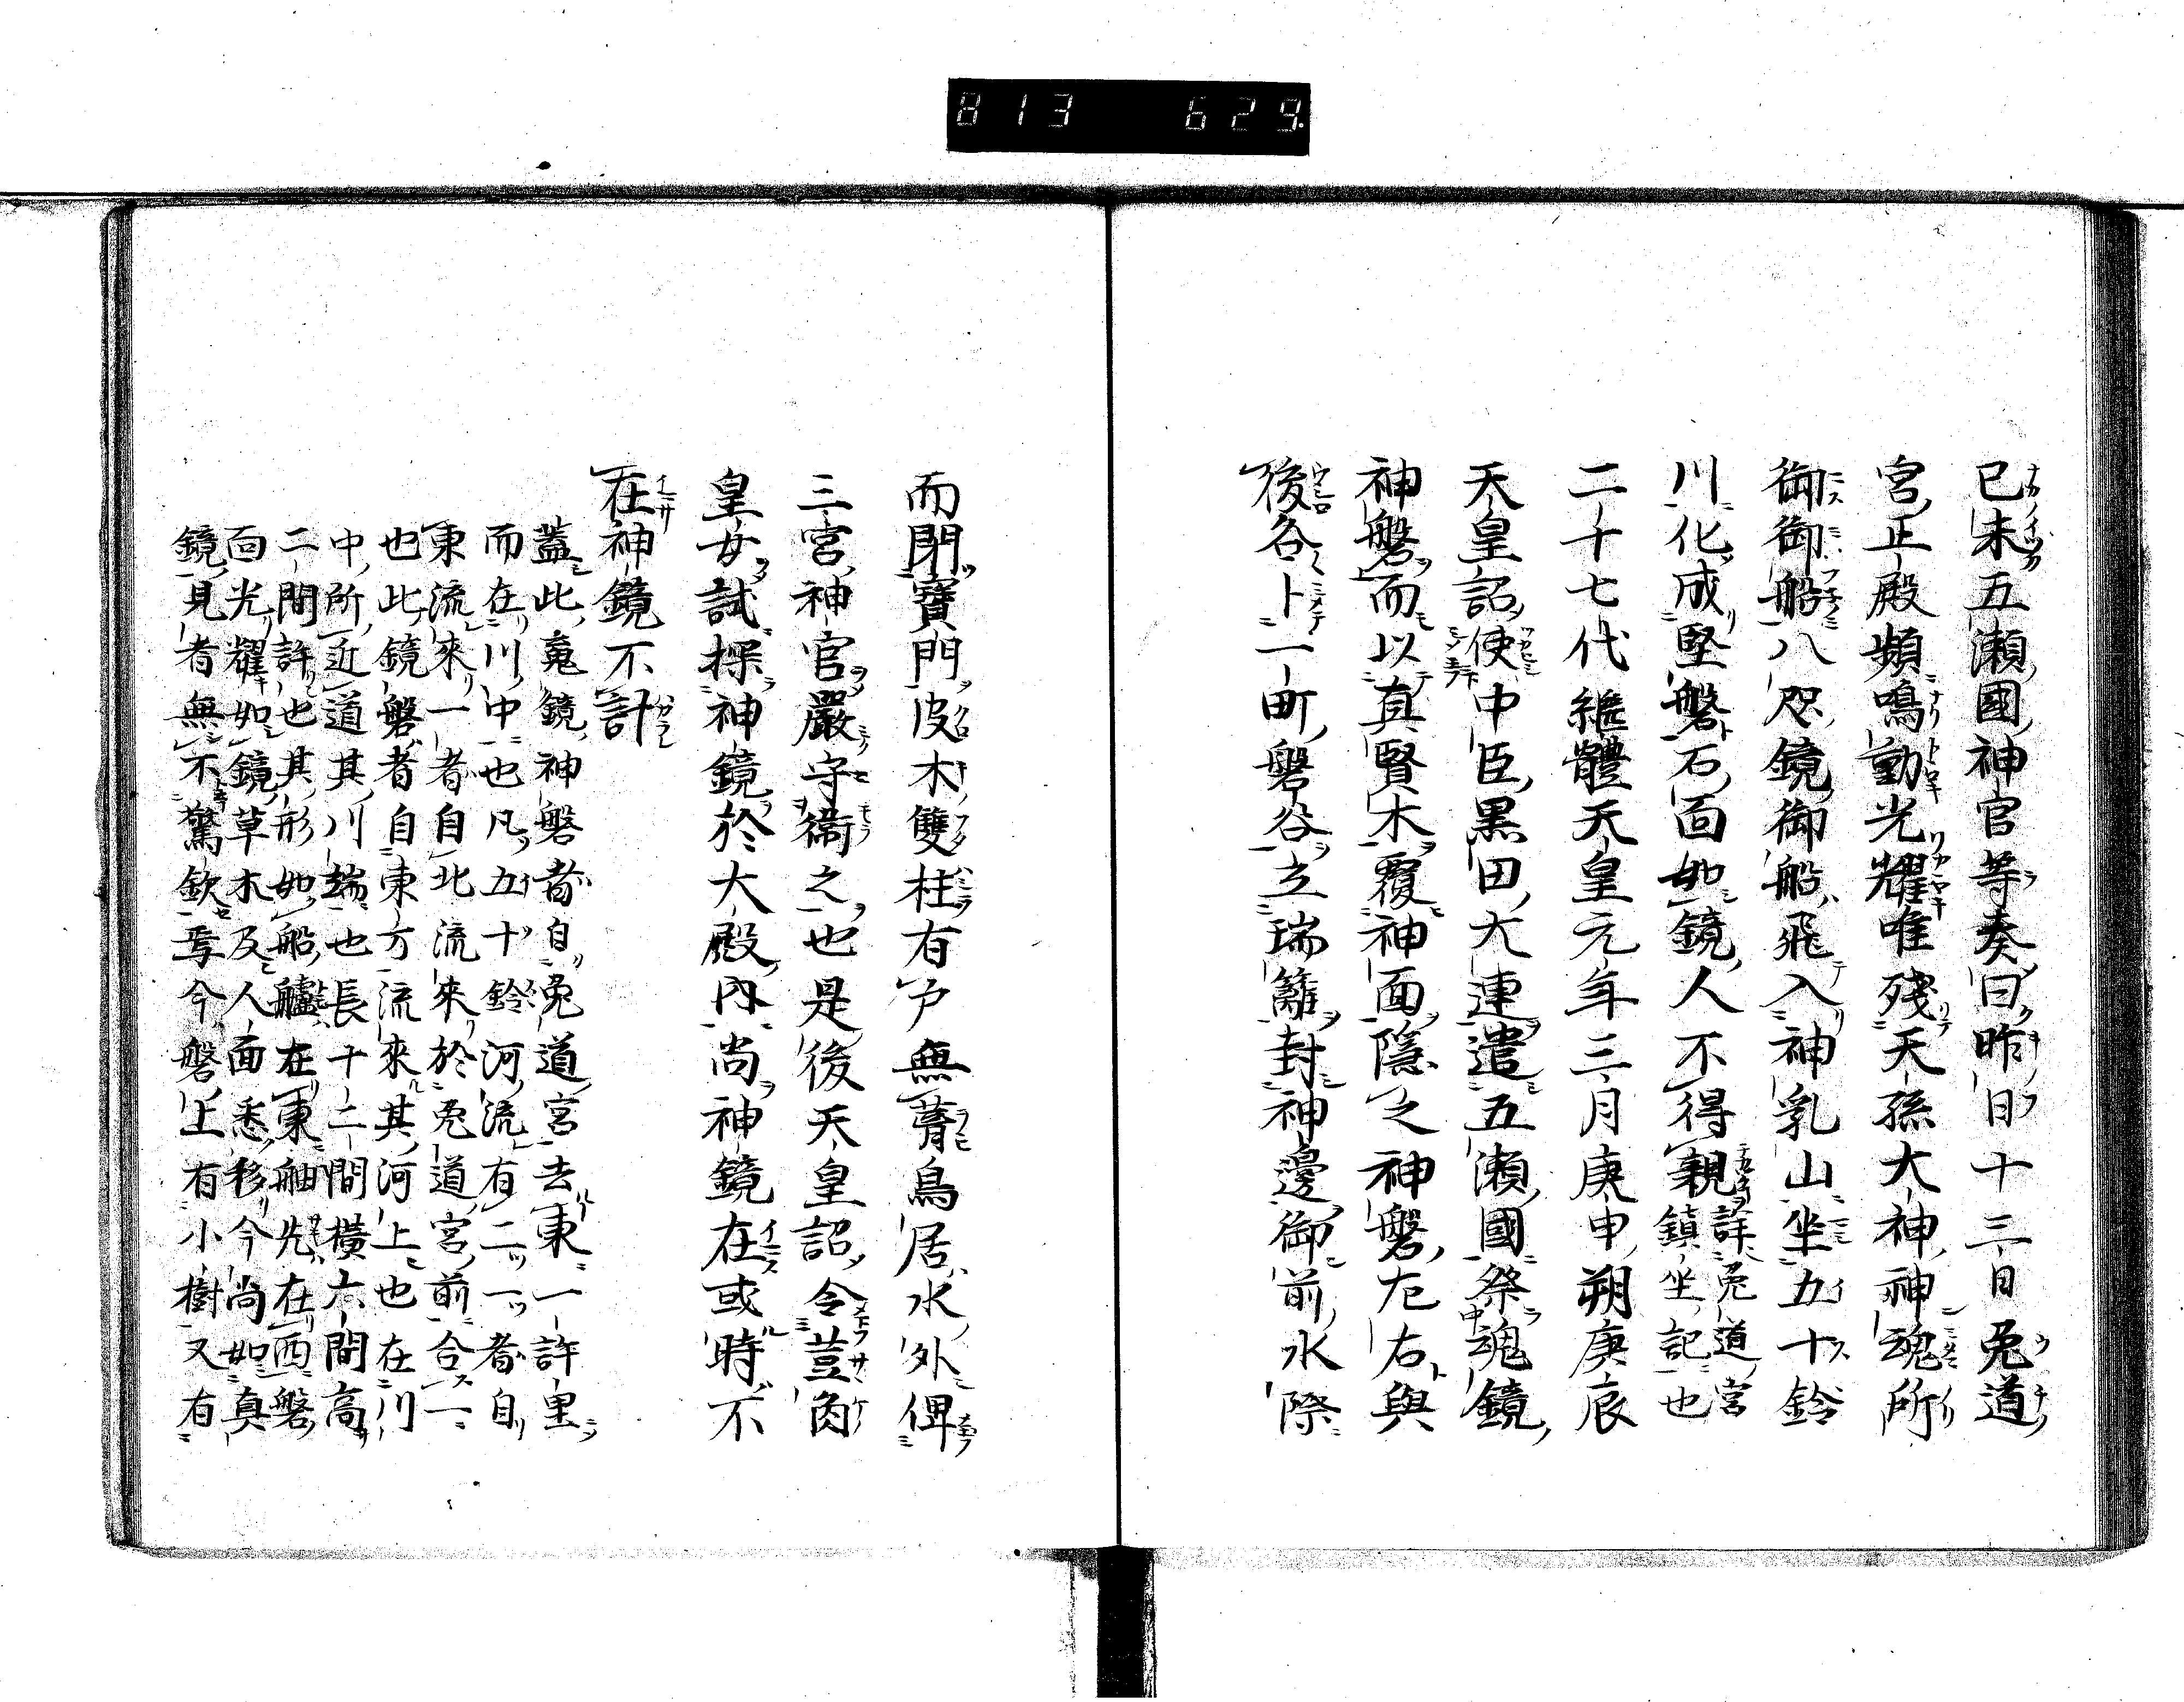 813 629.
已未五瀬國神官等奏曰昨日十三日兎道
宮正殿頻鳴動光耀唯殘天孫大神神魂所
御御船八咫鏡御船飛入神乳山坐五十鈴
川化成堅磐石面如鏡人不得親詳兎道宮鎮坐記也
二十七代繼體天皇元年三月庚申朔庚辰
天皇詔使中臣黒田大連遣五瀬國祭魂鏡
神磐而以真賢木覆神面隱之神磐左右與
後各卜一町磐谷立瑞籬封神邊御前水際
而閉寶門皮木雙柱有戸無蓇鳥居水外俾
三宮神官嚴守衞之也是後天皇詔令荳角
皇女試探神鏡於大殿内尚神鏡在或時不
在神鏡不計
蓋此寬鏡神磐者自兎道宮去東一許里
而在川中也凡五十鈴河流有二一者自
東流來一者自北流來於兎道宮前合一
也此鏡磐者自東方流來其河上也在川
中所近道其川端也長十二間橫六間高
二間許也其形如船艫在東舳光在西磐
面光耀如鏡草木及人面悉移今尚如真
鏡見者無不驚欽焉今磐上有小樹又有